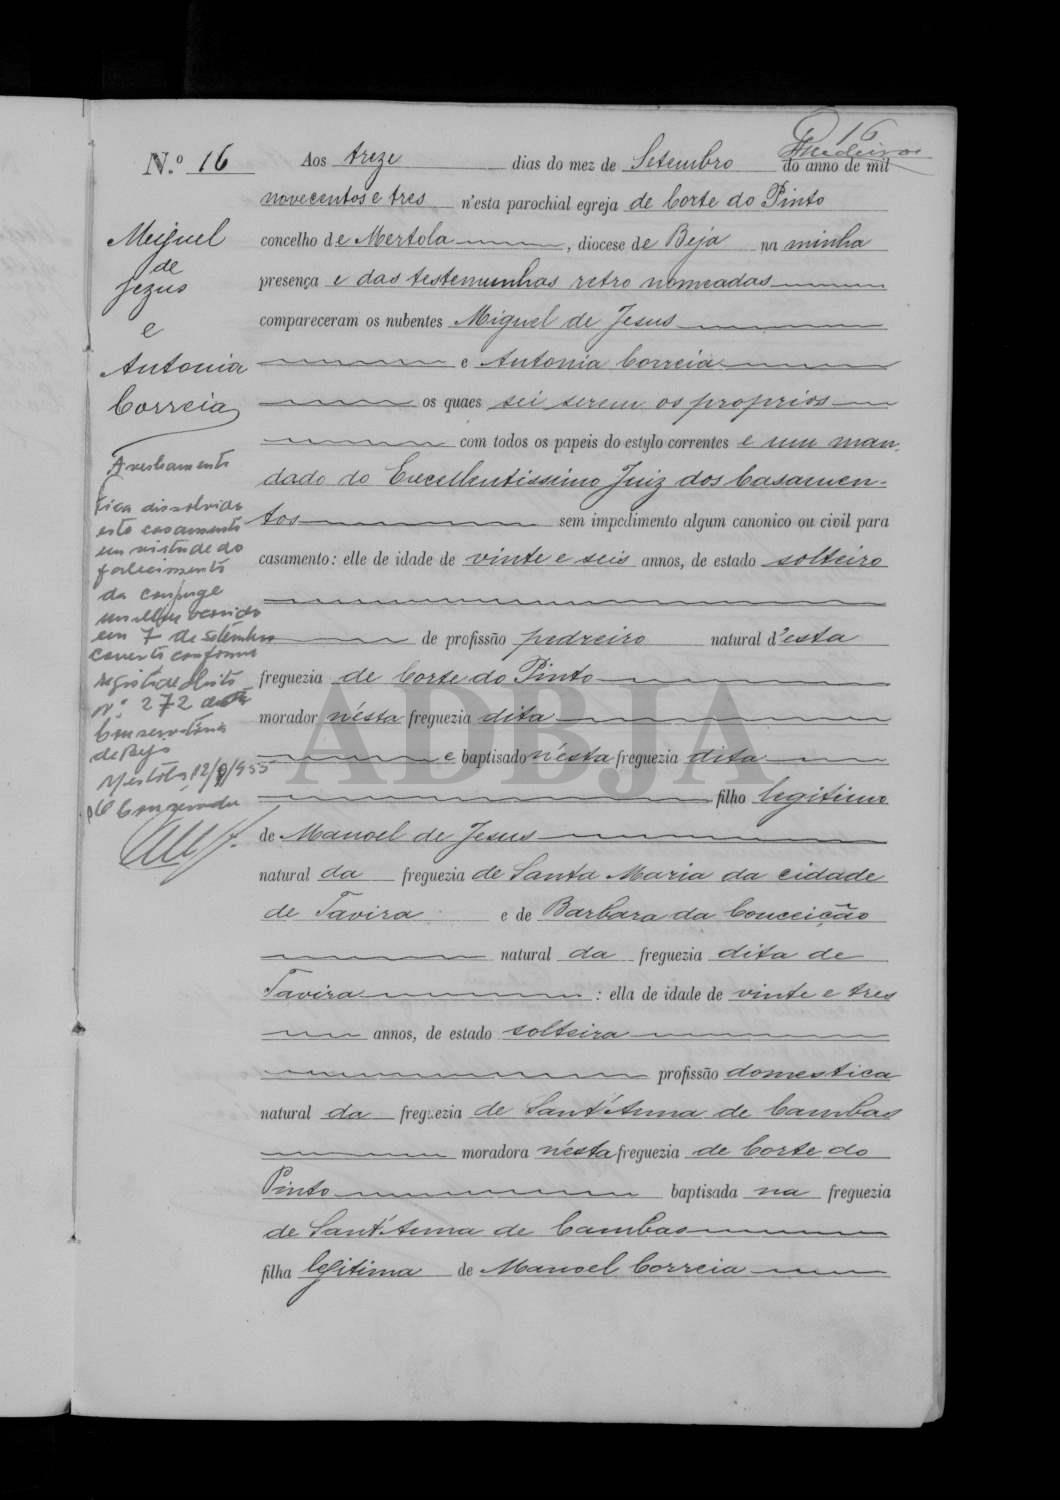 16
Medeiros
N.º 16
Aos treze dias do mez de Setembro do anno de mil
novecentos e tres n'esta parochial egreja de Corte do Pinto
concelho de Mertola, diocese de Beja na minha
presença e das testemunhas retro nomeadas
compareceram os nubentes Miguel de Jesus
e Antonia Correia
os quaes sei serem os proprios
com todos os papeis do estylo correntes e um man-
dado do Excellentissimo Juiz dos Casamen-
tos sem impedimento algum canonico ou civil para
casamento: elle de idade de vinte e seis annos, de estado solteiro
de profissão pedreiro natural d'esta
freguezia de Corte do Pinto
morador n'esta freguezia dita
e baptisado n'esta freguezia dita
filho legitimo
de Manoel de Jesus
natural da freguezia de Santa Maria da cidade
de Tavira e de Barbara da Conceição
natural da freguezia dita de
Tavira : ella de idade de vinte e tres
annos, de estado solteira
profissão domestica
natural da freguezia de Sant'Anna de Cambas
moradora n'esta freguezia de Corte do
Pinto baptisada na freguezia
de Sant'Anna de Cambas
filha legitima de Manoel Correia
Miguel
de
Jezus
e
Antonia
Correia
Averbamento
Fica dissolvido
este casamento
em virtude do
falecimento
da conjuge
mulher ocorrido
em 7 de Setembro
corrente conforme
registo de obito
N.º 272 da
Conservatória
de Beja
Mertola, 12/9/955
O Conservador
ADBJA